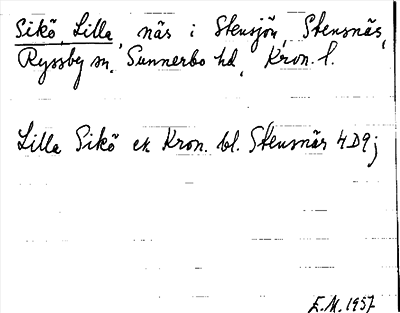 Sikö, Lilla, näs i Stensjön, Stensnäs,
Ryssby sn, Sunnerbo hd, Kron. l.
Lilla Sikö ek Kron. bl. Stensnäs 4D9j
E.M. 1957